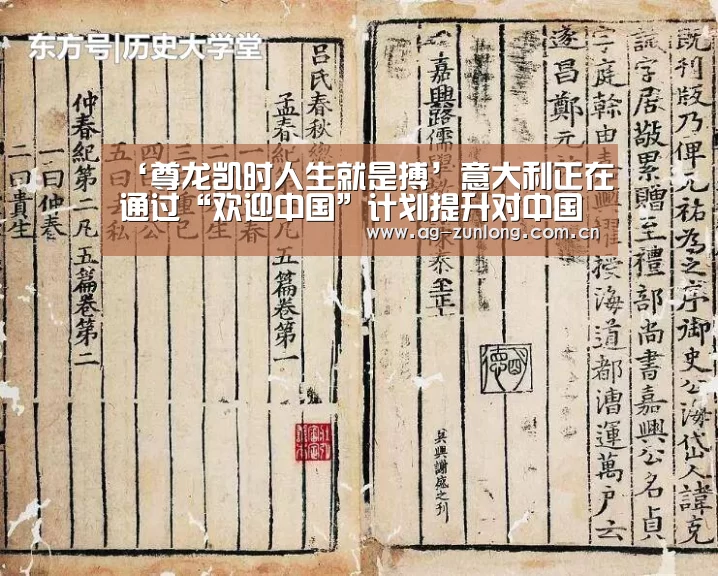 东方号|历史大学堂
‘尊龙凯时人生就是搏’意大利正在
通过“欢迎中国”计划提升对中国
www.ag-zunlong.com.cn
既刊版乃俾元祐為之序御史公海岱人諱克
誠字居敬累贈至禮部尚書嘉興公名貞
字庭榦由 授海道都漕運萬戶云
遂昌鄭元
嘉興路儒學 陳泰至正十
吳興謝盛之刊
呂氏春秋總
孟春紀 凡五篇卷第一
仲春紀第二凡五篇卷第二
一曰仲春
二曰貴生